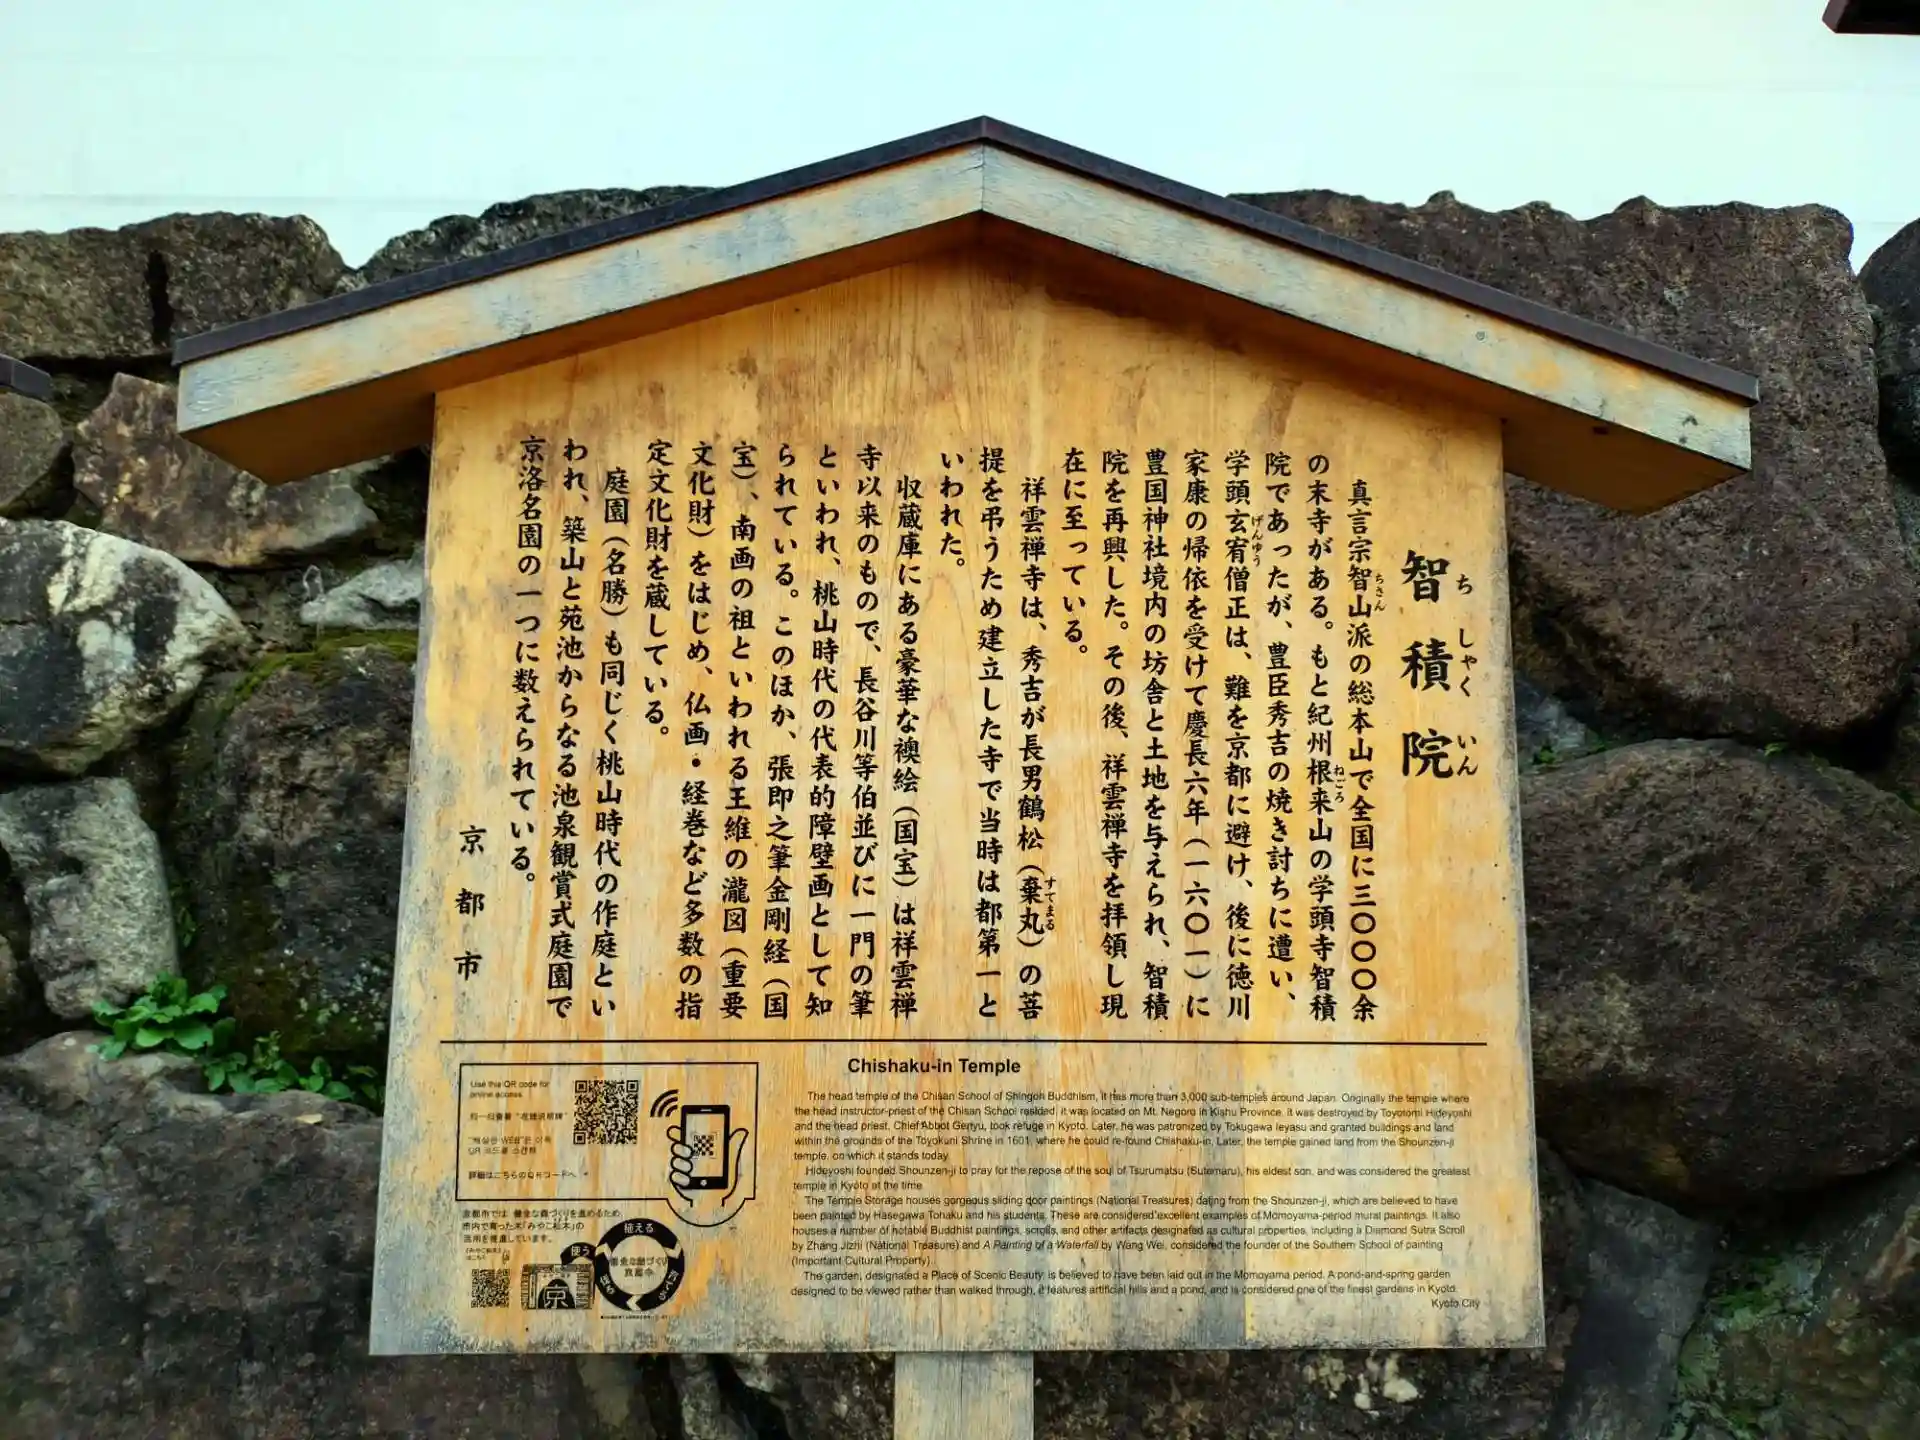 智積院
ち しゃく いん
真言宗智山派の総本山で全国に三〇〇〇余
ちさん
の末寺がある。もと紀州根来山の学頭寺智積
ねごろ
院であったが、豊臣秀吉の焼き討ちに遭い、
学頭玄宥僧正は、難を京都に避け、後に徳川
げんゆう
家康の帰依を受けて慶長六年（一六〇一）に
豊国神社境内の坊舎と土地を与えられ、智積
院を再興した。その後、祥雲禅寺を拝領し現
在に至っている。
祥雲禅寺は、秀吉が長男鶴松（棄丸）の菩
すてまる
提を弔うため建立した寺で当時は都第一と
いわれた。
収蔵庫にある豪華な襖絵（国宝）は祥雲禅
寺以来のもので、長谷川等伯並びに一門の筆
といわれ、桃山時代の代表的障壁画として知
られている。このほか、張即之筆金剛経（国
宝）、南画の祖といわれる王維の瀧図（重要
文化財）をはじめ、仏画・経巻など多数の指
定文化財を蔵している。
庭園（名勝）も同じく桃山時代の作庭とい
われ、築山と苑池からなる池泉観賞式庭園で
京洛名園の一つに数えられている。
京都市
Chishaku-in Temple
The head temple of the Chisan School of Shingon Buddhism, it has more than 3,000 sub-temples around Japan. Originally the temple where
the head instructor-priest of the Chisan School resided, it was located on Mt. Negoro in Kishu Province. It was destroyed by Toyotomi Hideyoshi
and the head priest, Chief Abbot Genyu, took refuge in Kyoto. Later, he was patronized by Tokugawa Ieyasu and granted buildings and land
within the grounds of the Toyokuni Shrine in 1601, where he could re-found Chishaku-in. Later, the temple gained land from the Shounzen-ji
temple, on which it stands today.
Hideyoshi founded Shounzen-ji to pray for the repose of the soul of Tsurumatsu (Sutemaru), his eldest son, and was considered the greatest
temple in Kyoto at the time.
The Temple Storage houses gorgeous sliding door paintings (National Treasures) dating from the Shounzen-ji, which are believed to have
been painted by Hasegawa Tohaku and his students. These are considered excellent examples of Momoyama-period mural paintings. It also
houses a number of notable Buddhist paintings, scrolls, and other artifacts designated as cultural properties, including a Diamond Sutra Scroll
by Zhang Jizhi (National Treasure) and A Painting of a Waterfall by Wang Wei, considered the founder of the Southern School of painting
(Important Cultural Property).
The garden, designated a Place of Scenic Beauty, is believed to have been laid out in the Momoyama period. A pond-and-spring garden
designed to be viewed rather than walked through, it features artificial hills and a pond, and is considered one of the finest gardens in Kyoto.
Kyoto City
Use this QR code for
online access.
詳細はこちらのQRコードへ
京都市では、健全な森づくりを進めるため、
市内で育った木「みやこ杣木」の
活用を推進しています。
植える
使う
京